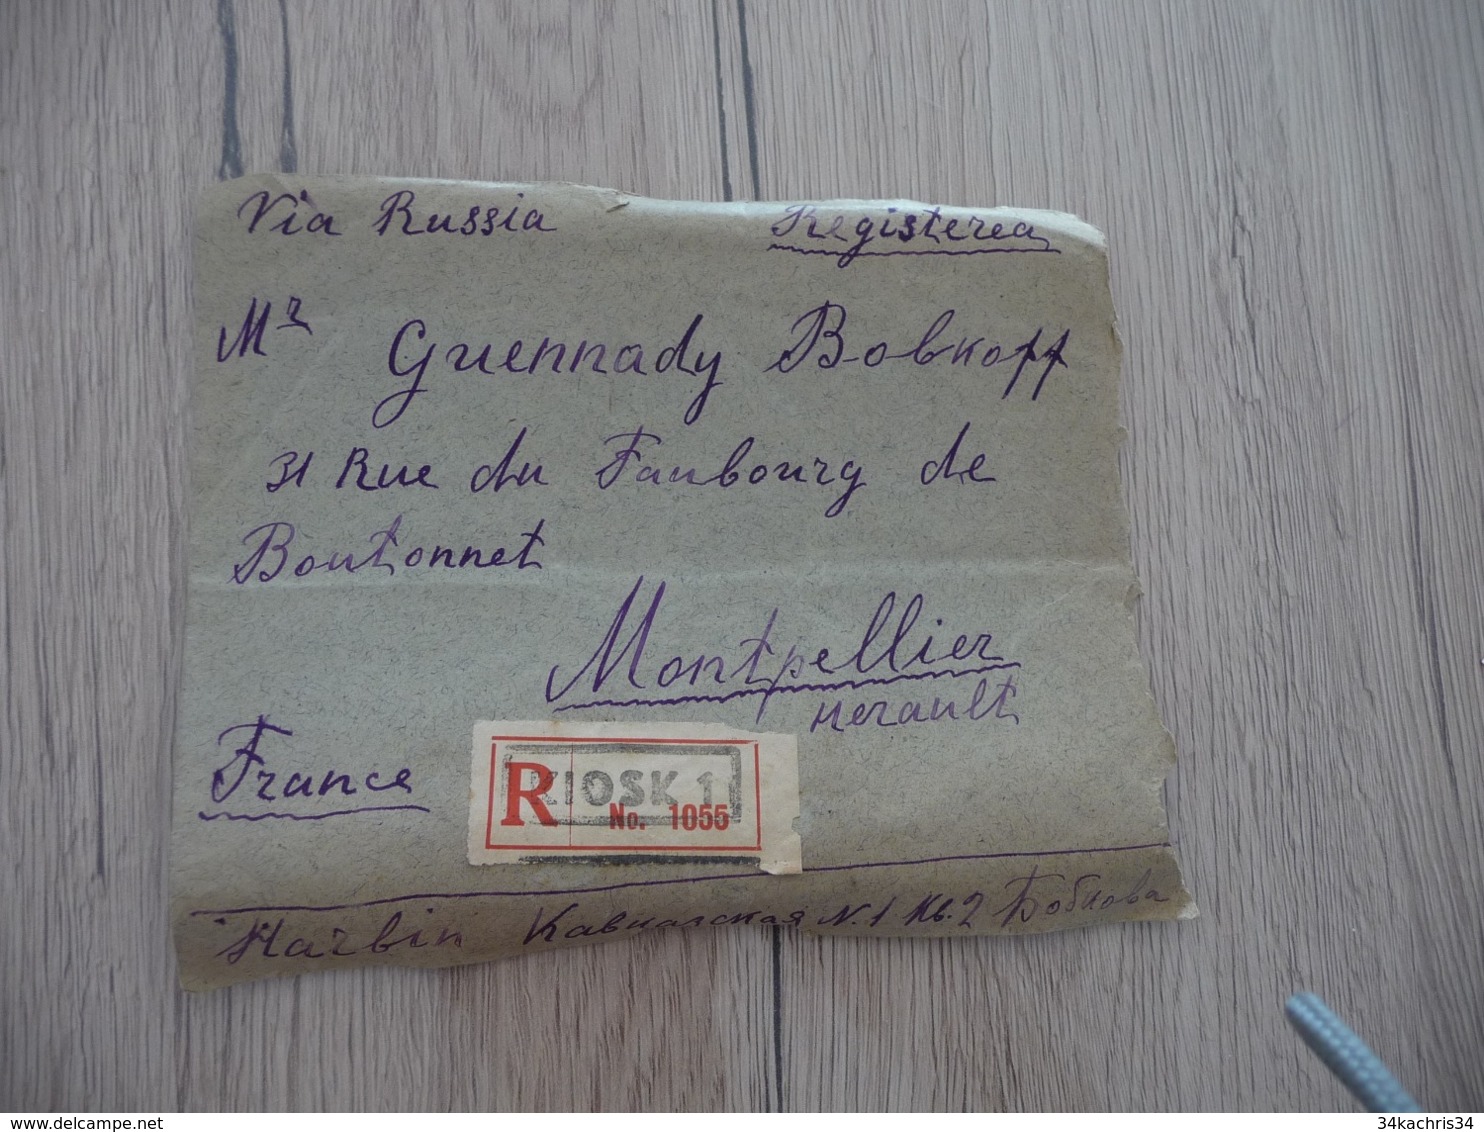 Via Russia Registered
Mr Guennady Bobkoff
31 Rue du Faubourg de
Boutonnet
Montpellier
Herault
France
KIOSK 1
R No. 1055
Harbin Кавказская N.1 Кв.2 Бобкова
delcampe.net
34kachris34